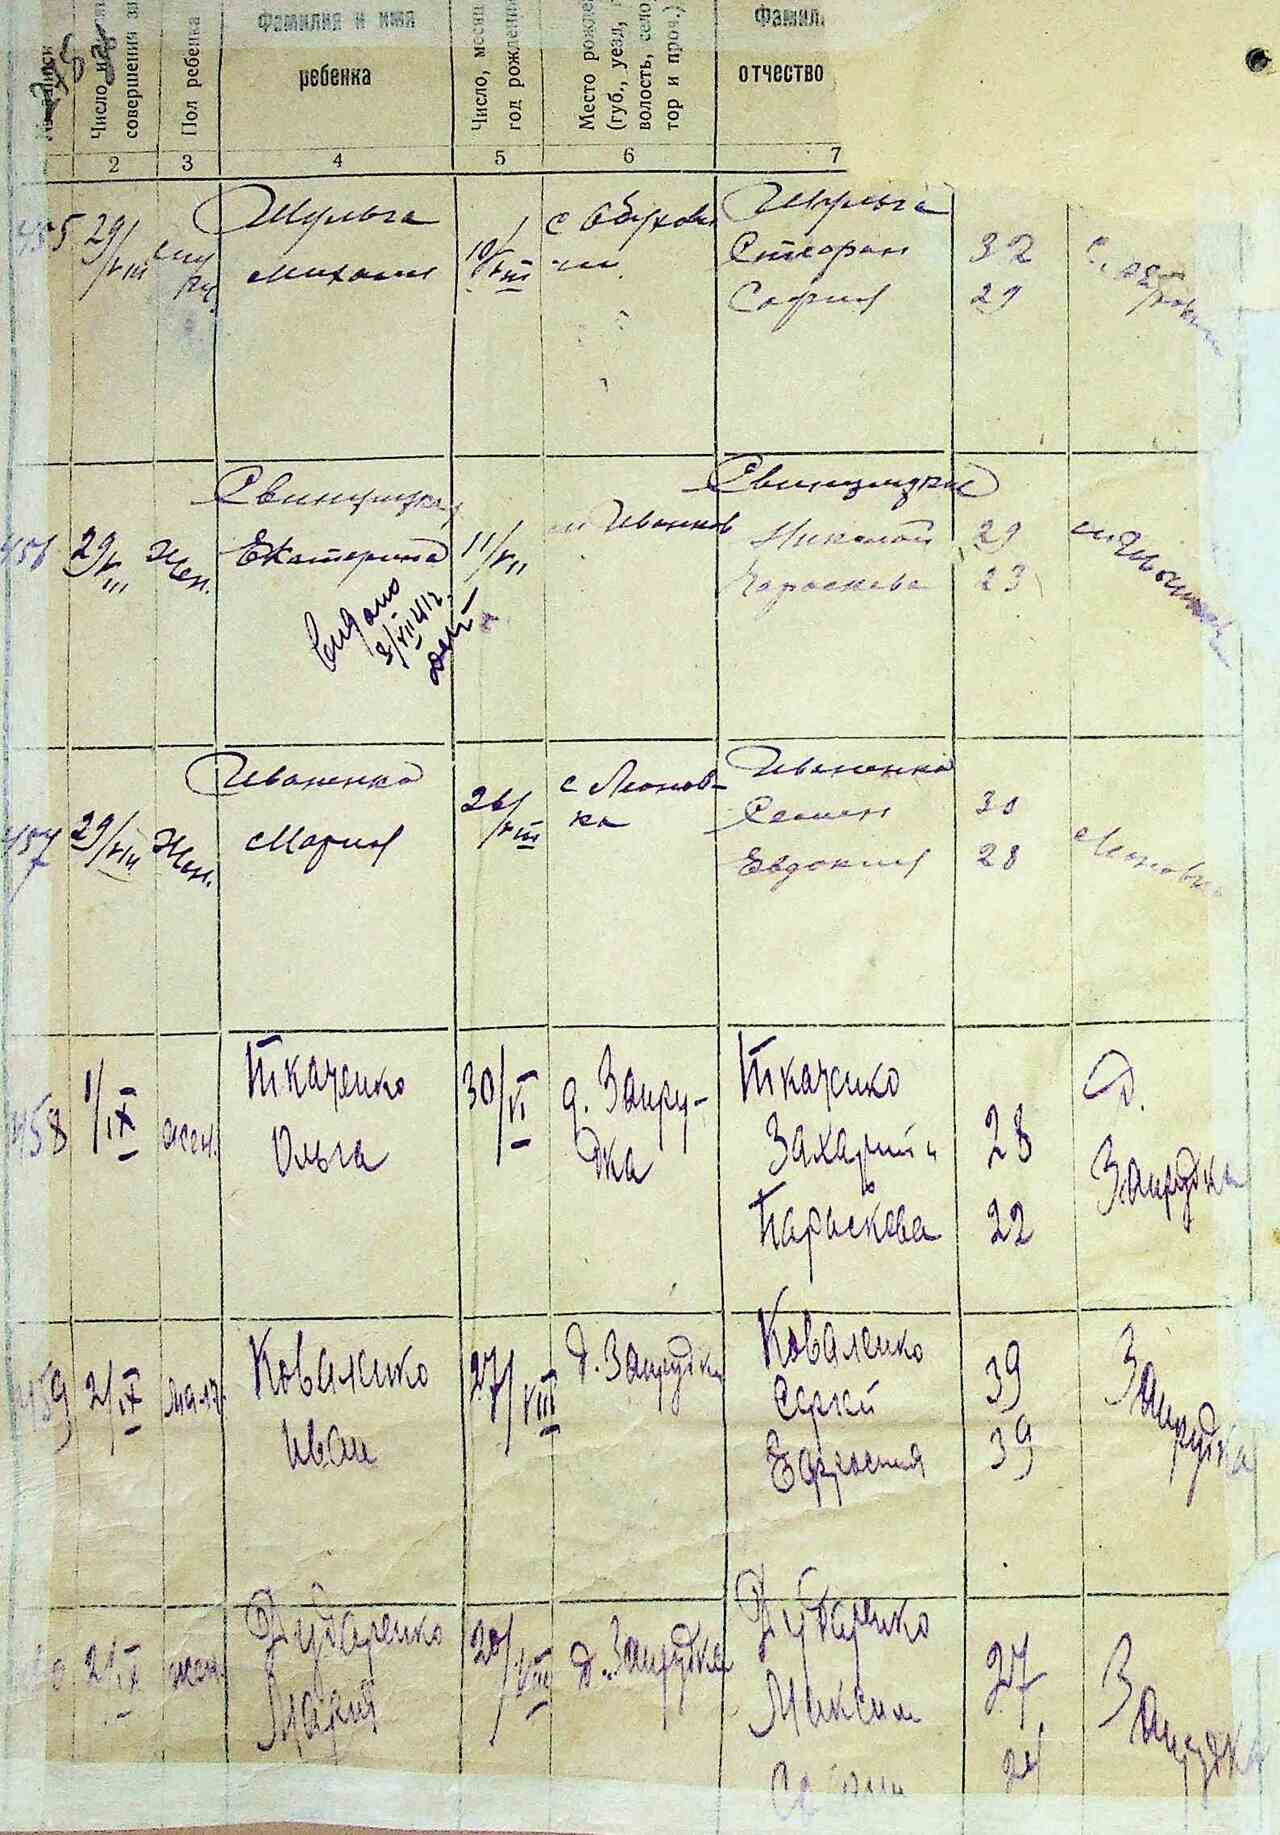 Число, м
совершения за
Пол ребенка
Фамилия и имя
ребенка
Число, меся
год рождени
Место рожде
(губ., уезд,
волость, село,
тор и проч.)
Фамил.
отчество
2 3 4 5 6 7
455 29/VIII
Шульга
Михаил
10/VIII
с Обухови
чи
Шульга
Стефан 32
София 29
456 29/VIII Жен.
Свинцицкая
Екатерина
Выдано
3/VII 41 г.
11/VII
м Иванков
Свинцицкие
Николай 29
Параскева 23
м. Иванков
457 29/VIII Жен.
Иваненко
Мария
26/VIII
с Леонов-
ка
Иваненко
Семен 30
Евдокия 28
Леоновка
458 1/IX жен.
Ткаченко
Ольга
30/VI
д. Заиру-
дка
Ткаченко
Захарий и 28
Параскева 22
д.
Заирудка
459 2/IX мал.
Коваленко
Иван
27/VIII
д. Заирудка
Коваленко
Сергей 39
Ефросиния 39
Заирудка
2/IX жен.
Дударенко
Мария
20/VIII
д. Заирудка
Дударенко
Максим 27
24
Заирудка